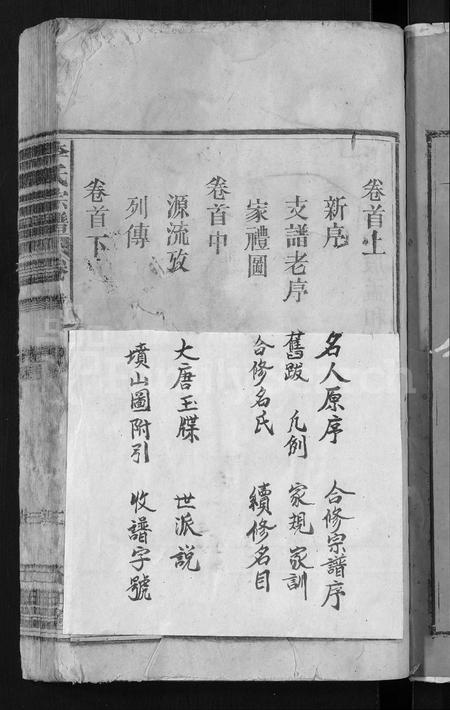 卷首上
新序 名人原序 合修宗譜序
支譜老序 舊跋 凡例 家規 家訓
家禮圖 合修名氏 續修名目
卷首中
源流攷 大唐玉牒 世派説
列傳 墳山圖附引 收譜字號
卷首下